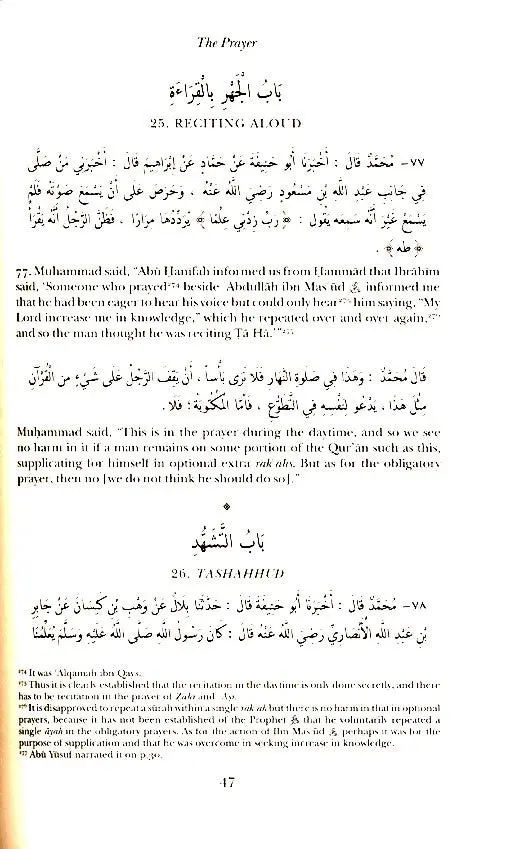 The Prayer
بَابُ الْجَهْرِ بِالْقِرَاءَةِ
25. RECITING ALOUD
٧٧- مُحَمَّدٌ قَالَ : أَخْبَرَنَا أَبُو حَنِيفَةَ عَنْ حَمَّادٍ عَنْ إِبْرَاهِيمَ قَالَ : أَخْبَرَنِي مَنْ صَلَّى
فِي جَانِبِ عَبْدِ اللَّهِ بْنِ مَسْعُودٍ رَضِيَ اللَّهُ عَنْهُ ، وَحَرَصَ عَلَى أَنْ يَسْمَعَ صَوْتَهُ فَلَمْ
يَسْمَعْ غَيْرَ أَنَّهُ سَمِعَهُ يَقُولُ : ﴿ رَبِّ زِدْنِي عِلْمًا ﴾ يُرَدِّدُهَا مِرَارًا ، فَظَنَّ الرَّجُلُ أَنَّهُ يَقْرَأُ
﴿ طه ﴾ .
77. Muḥammad said, "Abū Ḥanīfah informed us from Ḥammād that Ibrāhīm
said, 'Someone who prayed²⁷⁴ beside ʿAbdullāh ibn Masʿūd ؓ informed me
that he had been eager to hear his voice but could only hear²⁷⁵ him saying, "My
Lord increase me in knowledge," which he repeated over and over again,²⁷⁶
and so the man thought he was reciting Ṭā Hā.'"²⁷⁷
قَالَ مُحَمَّدٌ : وَهَذَا فِي صَلَوةِ النَّهَارِ فَلَا نَرَى بَأْسًا ، أَنْ يَقِفَ الرَّجُلُ عَلَى شَيْءٍ مِنَ الْقُرْآنِ
مِثْلِ هَذَا ، يَدْعُو لِنَفْسِهِ فِي التَّطَوُّعِ ، فَأَمَّا الْمَكْتُوبَةُ ؛ فَلَا .
Muḥammad said, "This is in the prayer during the daytime, and so we see
no harm in it if a man remains on some portion of the Qur'ān such as this,
supplicating for himself in optional extra rakʿahs. But as for the obligatory
prayer, then no [we do not think he should do so]."
بَابُ التَّشَهُّدِ
26. TASHAHHUD
٧٨- مُحَمَّدٌ قَالَ : أَخْبَرَنَا أَبُو حَنِيفَةَ قَالَ : حَدَّثَنَا بِلَالٌ عَنْ وَهْبِ بْنِ كَيْسَانَ عَنْ جَابِرِ
بْنِ عَبْدِ اللَّهِ الْأَنْصَارِيِّ رَضِيَ اللَّهُ عَنْهُ قَالَ : كَانَ رَسُولُ اللَّهِ صَلَّى اللَّهُ عَلَيْهِ وَسَلَّمَ يُعَلِّمُنَا
²⁷⁴ It was ʿAlqamah ibn Qays.
²⁷⁵ Thus it is clearly established that the recitation in the daytime is only done secretly, and there
has to be recitation in the prayer of Ẓuhr and ʿAṣr.
²⁷⁶ It is disapproved to repeat a sūrah within a single rakʿah but there is no harm in that in optional
prayers, because it has not been established of the Prophet ﷺ that he voluntarily repeated a
single āyah in the obligatory prayers. As for the action of Ibn Masʿūd ؓ, perhaps it was for the
purpose of supplication and that he was overcome in seeking increase in knowledge.
²⁷⁷ Abū Yūsuf narrated it on p.30.
47